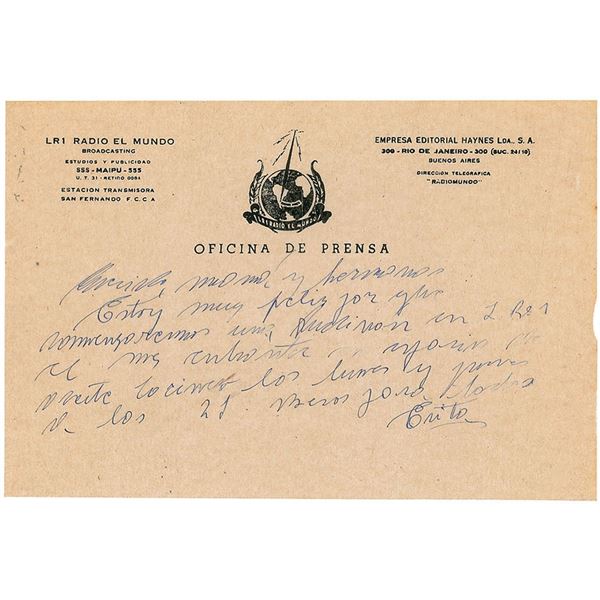 LR1 RADIO EL MUNDO
BROADCASTING
ESTUDIOS Y PUBLICIDAD
555 - MAIPU - 555
U. T. 31 - RETIRO 0081
ESTACION TRANSMISORA
SAN FERNANDO F. C. C A
EMPRESA EDITORIAL HAYNES LDA., S. A.
300 - RIO DE JANEIRO - 300 (SUC. 24/10)
BUENOS AIRES
DIRECCION TELEGRAFICA
"RADIOMUNDO"
LR1 RADIO EL MUNDO
OFICINA DE PRENSA
Querida mamá y hermanas
Estoy muy feliz por que
comenzaremos una audicion en L.R.1
el mes entrante
los lunes y jueves
a las 21 Besos para todos
Evita